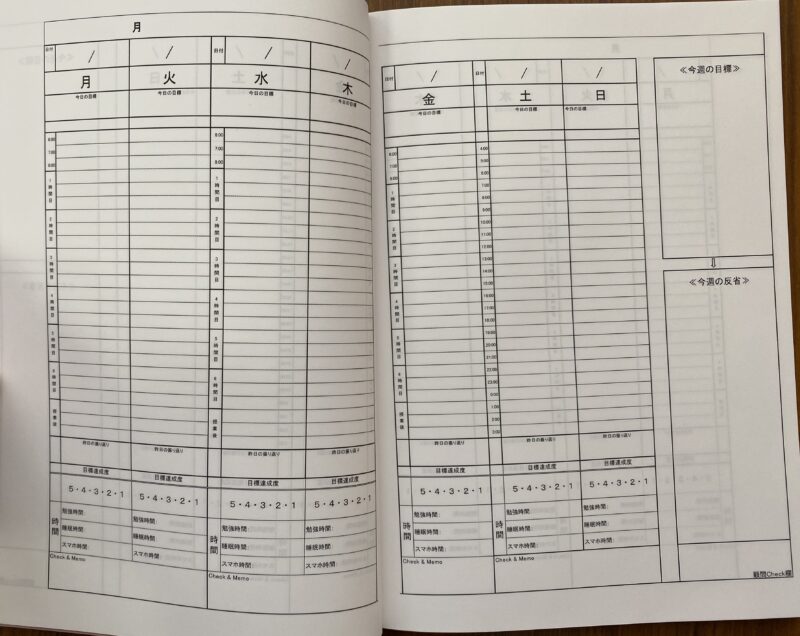 月
日付 / / 日付 / /
月 火 水 木
今日の目標 今日の目標 今日の目標 今日の目標
6:00 6:00
7:00 7:00
8:00 8:00
1時間目 1時間目
2時間目 2時間目
3時間目 3時間目
4時間目 4時間目
5時間目 5時間目
6時間目 6時間目
授業後 授業後
昨日の振り返り 昨日の振り返り 昨日の振り返り 昨日の振り返り
目標達成度 目標達成度 目標達成度 目標達成度
5・4・3・2・1 5・4・3・2・1 5・4・3・2・1 5・4・3・2・1
時間 時間
勉強時間: 勉強時間: 勉強時間: 勉強時間:
睡眠時間: 睡眠時間: 睡眠時間: 睡眠時間:
スマホ時間: スマホ時間: スマホ時間: スマホ時間:
Check & Memo Check & Memo
日付 / 日付 / /
金 土 日
今日の目標 今日の目標 今日の目標
6:00
7:00
8:00
1時間目
2時間目
3時間目
4時間目
5時間目
6時間目
授業後
4:00
5:00
6:00
7:00
8:00
9:00
10:00
11:00
12:00
13:00
14:00
15:00
16:00
17:00
18:00
19:00
20:00
21:00
22:00
23:00
0:00
1:00
2:00
3:00
昨日の振り返り 昨日の振り返り 昨日の振り返り
目標達成度 目標達成度 目標達成度
5・4・3・2・1 5・4・3・2・1 5・4・3・2・1
時間 時間
勉強時間: 勉強時間: 勉強時間:
睡眠時間: 睡眠時間: 睡眠時間:
スマホ時間: スマホ時間: スマホ時間:
Check & Memo Check & Memo
≪今週の目標≫
⇩
≪今週の反省≫
疑問Check欄